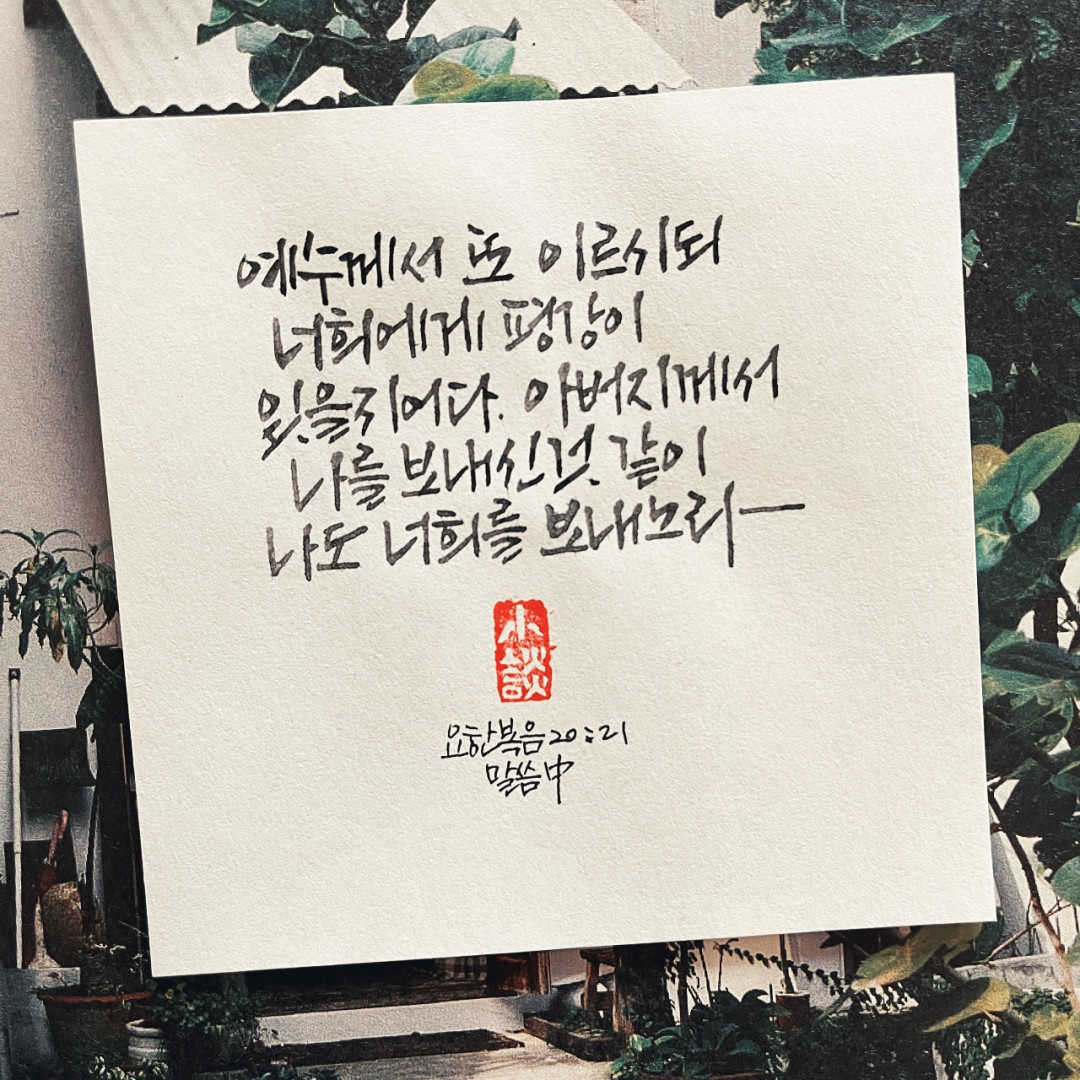 예수께서 또 이르시되
너희에게 평강이
있을지어다. 아버지께서
나를 보내신것 같이
나도 너희를 보내노라
小談
요한복음 20:21
말씀中